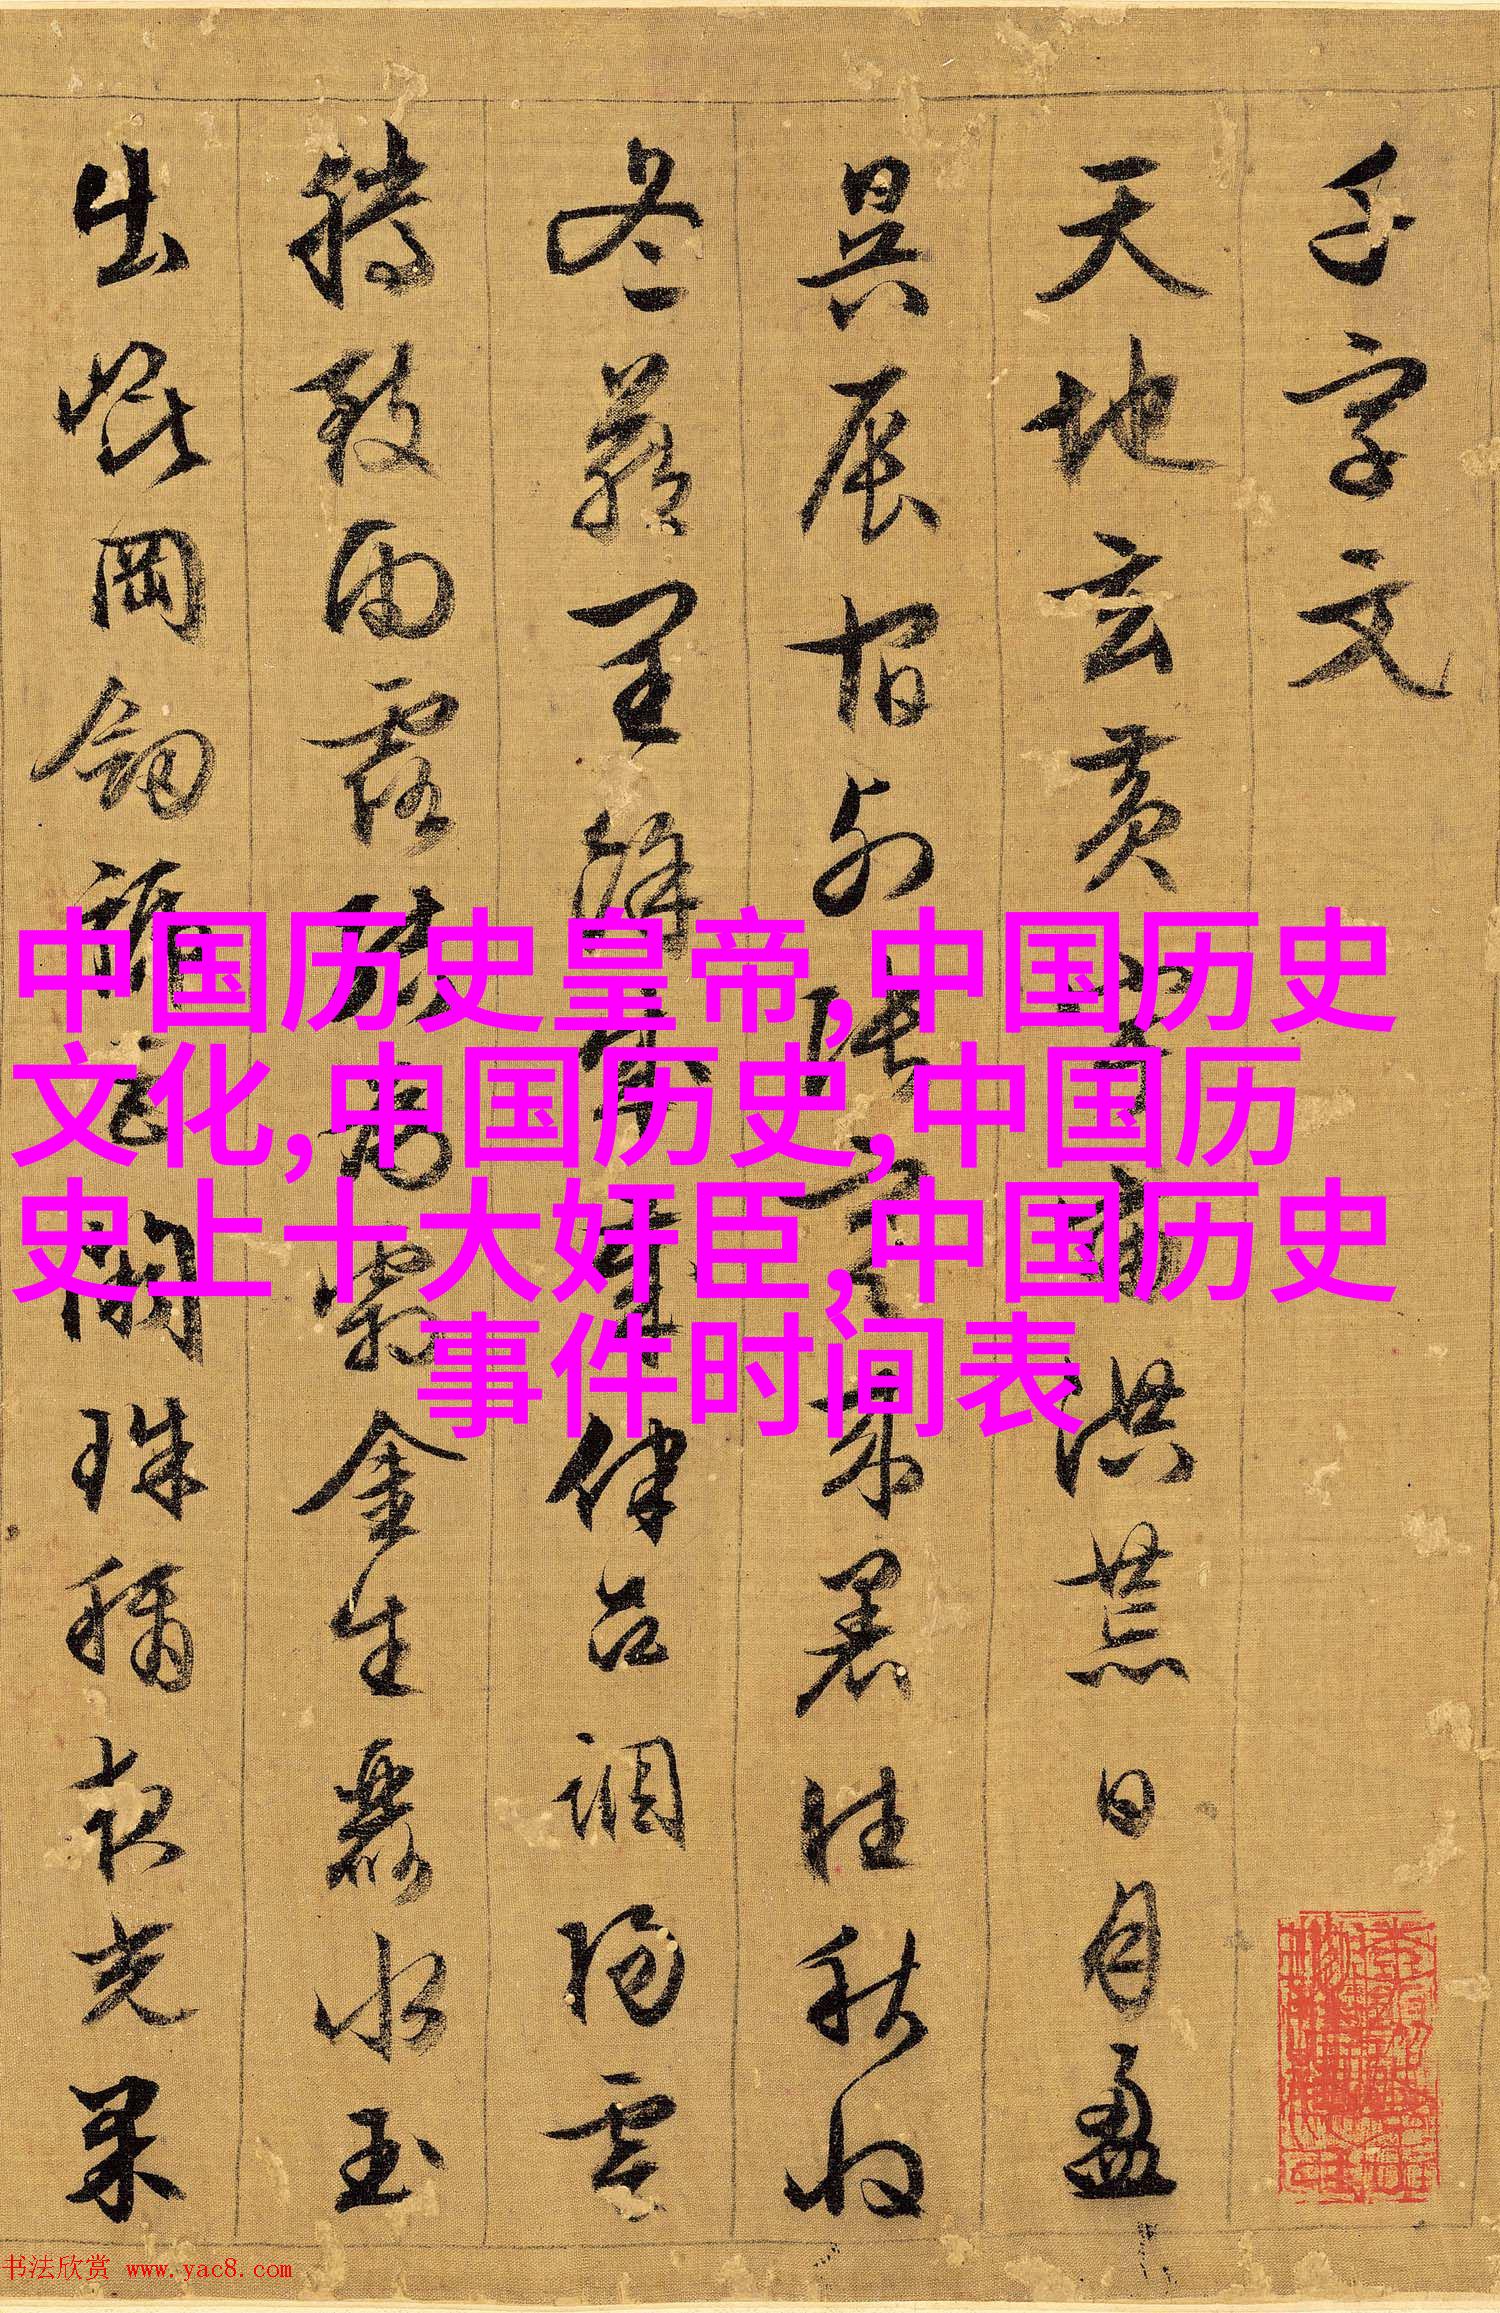 千字文
天地玄黃宇宙洪荒日月盈
昃辰宿列張寒來暑往秋收
冬藏閏餘成歲律呂調陽雲
騰致雨露結為霜金生麗水玉
出崑岡劒號巨闕珠稱夜光果
中国历史皇帝,中国历史
文化,中国历史,中国历
史上十大奸臣,中国历史
事件时间表
书法欣赏 www.yac8.com